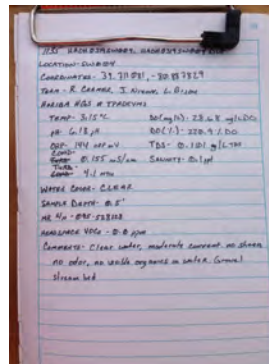 LOCATION- SW004
COORDINATES- 39.
TEAM- R. CRAMER, J. L.
HORIBA
TEMP- 3.15°C DO(mg/L)- 28.68 mg/L DO
pH- 6.18 pH DO(%)- 220.9 % DO
ORP- 144 mV TDS- 0.101 g/L TDS
COND- 0.155 mS/cm SALINITY- 0.1ppt
TURB- 4.1 ntu
WATER COLOR- CLEAR
SAMPLE DEPTH- 0.5'
HEADSPACE VOCs- 0.0 ppm
COMMENTS- Clear water, moderate current, no sheen
no odor, no visible organics in water. Gravel
stream bed